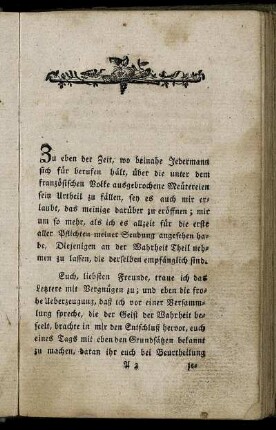 Zu eben der Zeit, wo beinahe Jedermann
sich für berufen hält, über die unter dem
französischen Volke ausgebrochene Meütereien
sein Urtheil zu fällen, sey es auch mir er-
laubt, das meinige darüber zu eröffnen; mir
um so mehr, als ich es allzeit für die erste
aller Pflichten meiner Sendung angesehen ha-
be. Diejenigen an der Wahrheit Theil neh-
men zu lassen, die derselben empfänglich sind.
Euch, liebsten Freunde, traue ich das
Letztere mit Vergnügen zu; und eben die fro-
he Ueberzeugung, daß ich vor einer Versamm-
lung spreche, die der Geist der Wahrheit be-
seelt, brachte in mir den Entschluß hervor, euch
eines Tags mit eben den Grundsätzen bekannt
zu machen, daran ihr euch bei Beurtheilung
A 2 je-